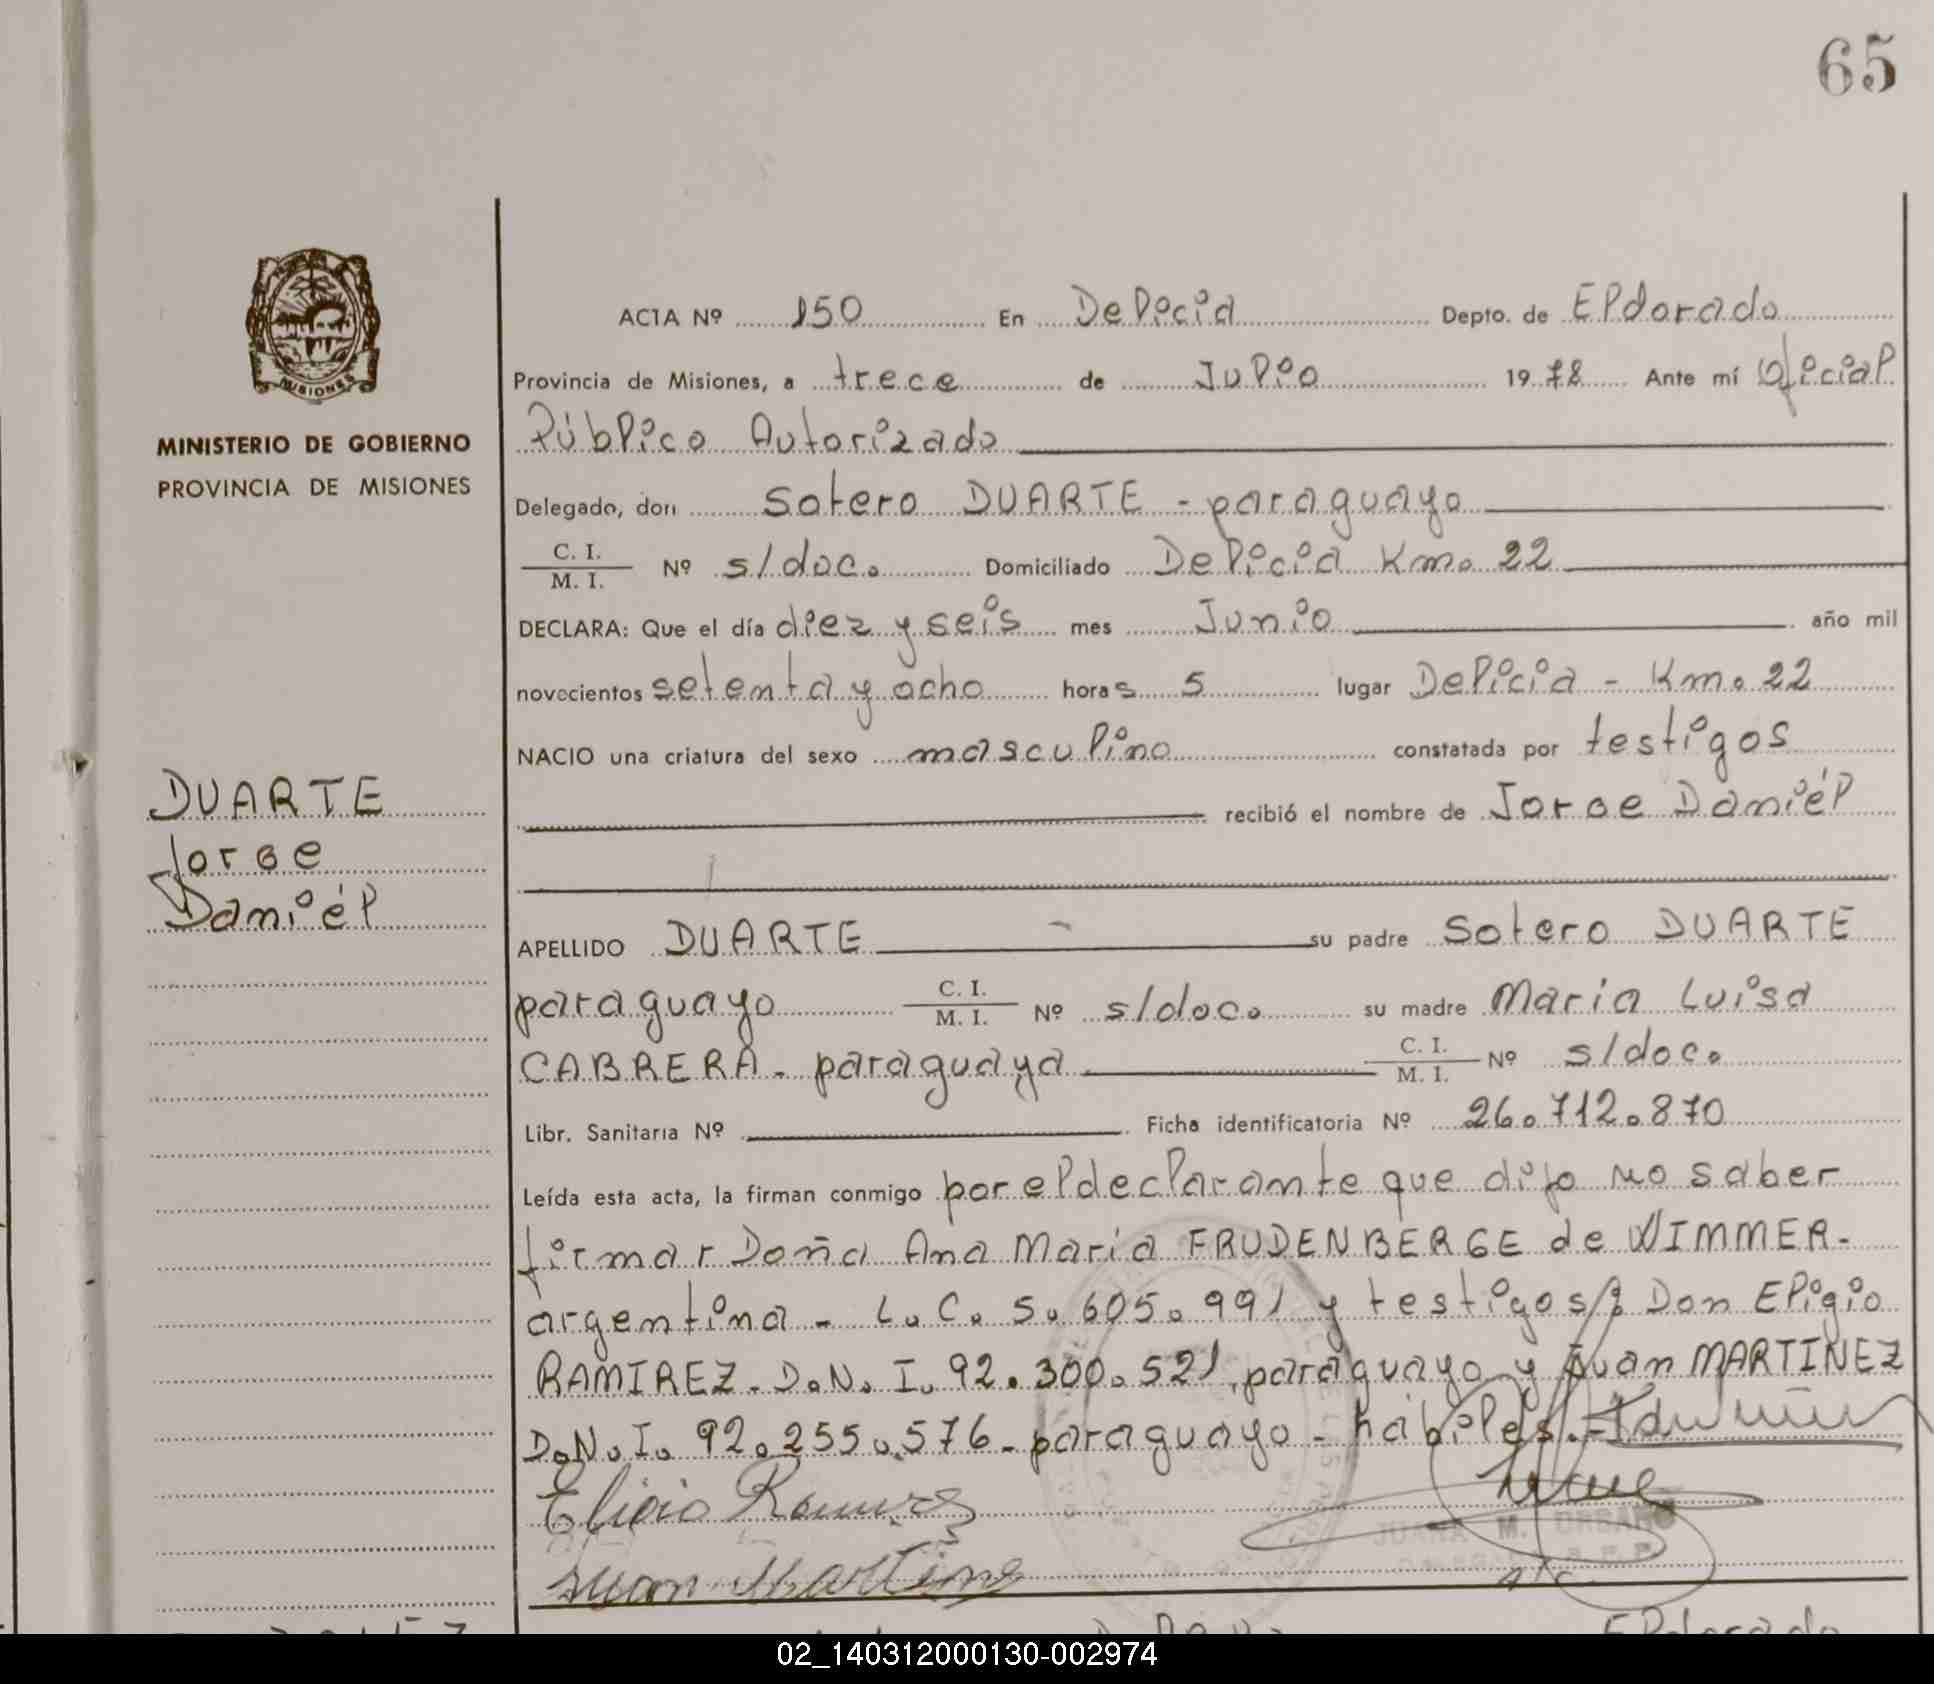 65
ACTA Nº 150 En Delicia Depto. de Eldorado
Provincia de Misiones, a trece de Julio 1978 Ante mí Oficial
Público Autorizado
Delegado, don Sotero DUARTE - paraguayo
C. I.
M. I. Nº s/doc. Domiciliado Delicia Km. 22
DECLARA: Que el día diez y seis mes Junio año mil
novecientos setenta y ocho horas 5 lugar Delicia - Km. 22
NACIO una criatura del sexo masculino constatada por testigos
recibió el nombre de Jorge Daniél
APELLIDO DUARTE su padre Sotero DUARTE
paraguayo C. I.
M. I. Nº s/doc. su madre Maria Luisa
CABRERA - paraguaya C. I.
M. I. Nº s/doc.
Libr. Sanitaria Nº Ficha identificatoria Nº 26.712.870
Leída esta acta, la firman conmigo por el declarante que dijo no saber
firmar Doña Ana Maria FRUDENBERGE de WIMMER-
argentina - L. C. 5.605.991 y testigos Don Eligio
RAMIREZ. D.N.I. 92.300.521, paraguayo y Juan MARTINEZ
D.N.I. 92.255.576 - paraguayo - hábiles.
Eligio Ramirez
JUANA M. URBANO
Juan Martinez
MISIONES
MINISTERIO DE GOBIERNO
PROVINCIA DE MISIONES
DUARTE
Jorge
Daniél
Eldorado
02_140312000130-002974